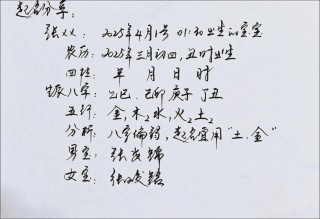 起名分享:
张XX: 2025年4月1号 01:30出生的宝宝
农历: 2025年三月初四, 丑时出生
四柱: 年 月 日 时
生辰八字: 乙巳、己卯 庚子 丁丑
五行: 金, 木2 水, 火2 土2
分析: 八字偏弱, 起名宜用"土.金"
男宝: 张
女宝: 张